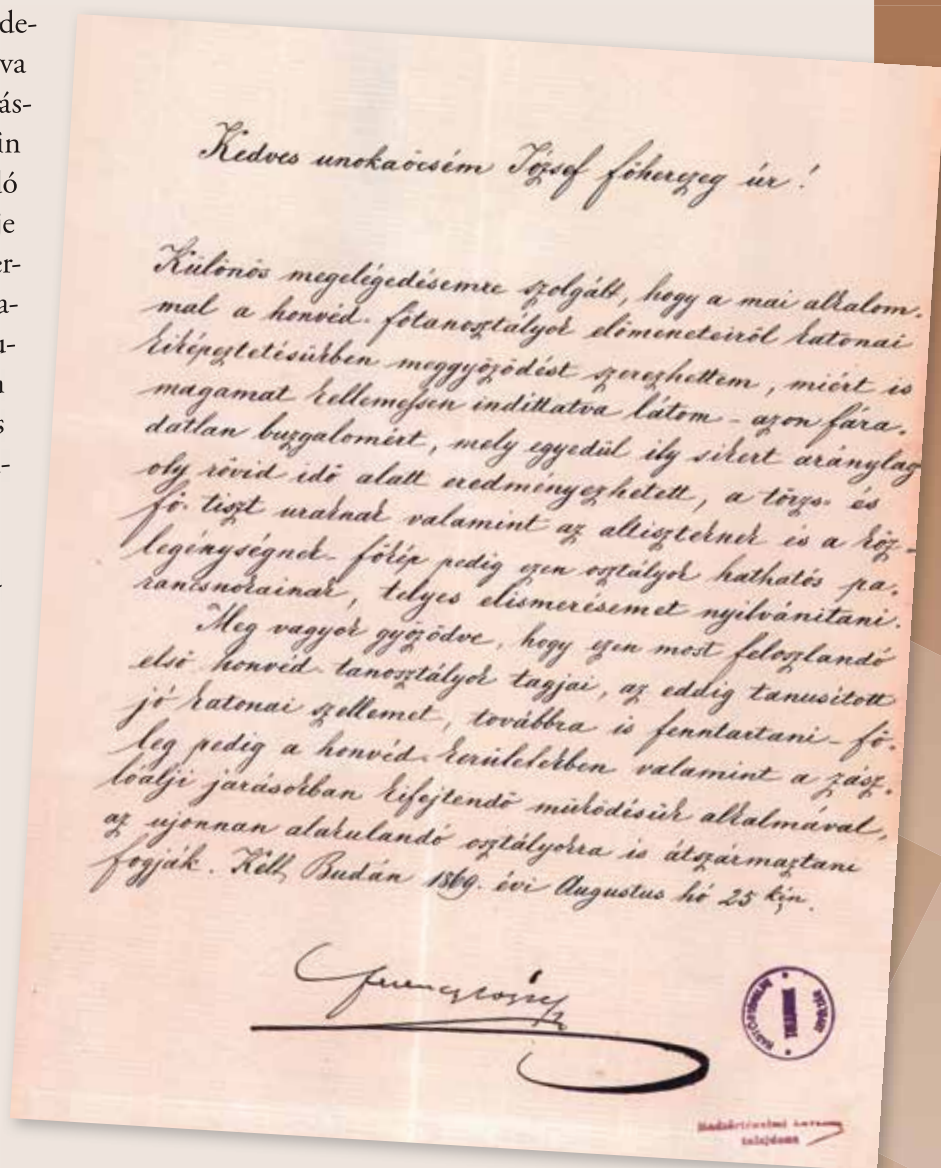 de-
va
ás-
in
ló
je
er-
a-
u-
n
s
-
Kedves unokaöcsém József főherczeg úr!
Különös megelégedésemre szolgált, hogy a mai alkalom-
mal a honvéd-főtanosztályok előmeneteiről katonai
kiképeztetésükben meggyőződést szerezhettem, miért is
magamat kellemessen indíttatva látom – azon fára-
datlan buzgalomért, mely egyedül ily sikert aránylag
oly rövid idő alatt eredményezhetett, a törzs- és
fő-tiszt uraknak valamint az altiszteknek is a köz-
legénységnek – főkép pedig ezen osztályok hathatós pa-
rancsnokainak, telyes elismerésemet nyilvánítani.
Meg vagyok győződve, hogy ezen most feloszlandó
első honvéd-tanosztályok tagjai, az eddig tanusított
jó katonai szellemet, továbbra is fenntartani – fő-
leg pedig a honvéd-kerületekben valamint a zász-
lóalji járásokban kifejtendő működésük alkalmával,
az ujonnan alakulandó osztályokra is átszármaztani
fogják. Kelt, Budán 1869. évi Augustus hó 25 kén.
Ferencz József
Hadtörténelmi
tulajdona